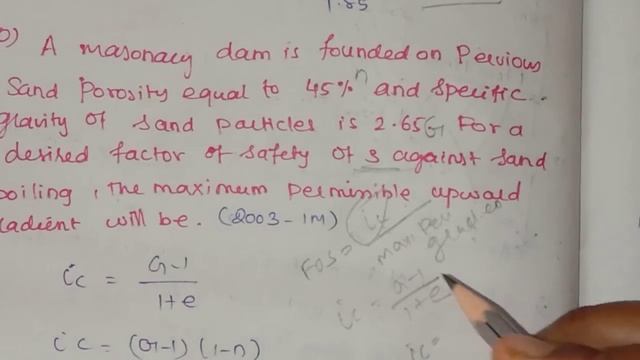 1.85
A masonacy dam is founded on Pervious
Sand Porosity equal to 45% n and Specific
gravity of sand particles is 2.65 G, For a
desired factor of safety of 3 against sand
boiling, The maximum permissible upward
gradient will be. (2003-1M)
ic = G-1
1+e
FOS = ic
max per
gradien
ic = G-1
1+e
ic = (G-1) (1-n)
ic =